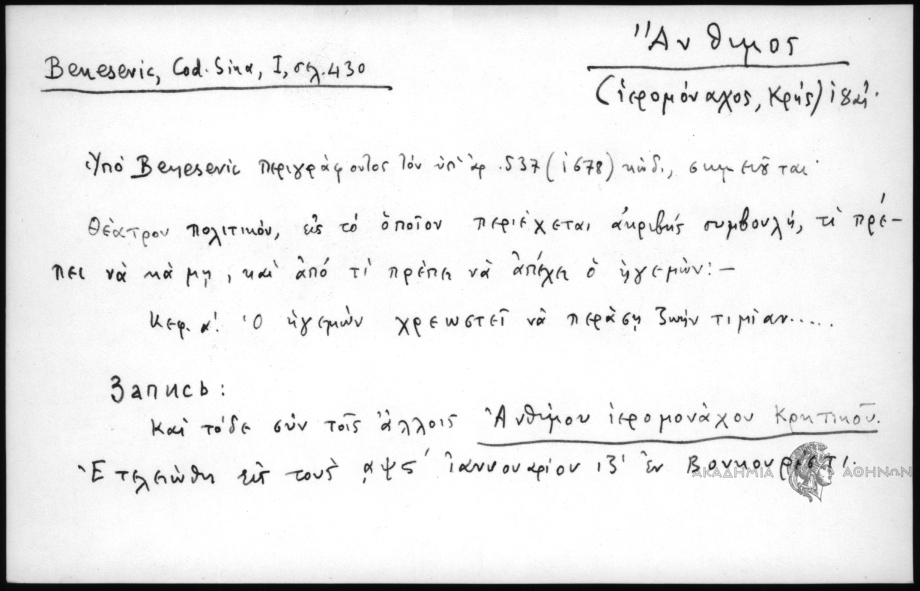 Ἄνθιμος
Benesevic, Cod. Sina, I, σελ. 430
(ἱερομόναχος, Κρής) ιηʹ αἰ.
Ὑπὸ Benesevic περιγράφοντος τὸν ὑπ' ἀρ. 537 (1678) κώδ., σημειοῦται·
Θέατρον πολιτικόν, εἰς τὸ ὁποῖον περιέχεται ἀκριβὴς συμβουλή, τί πρέ-
πει νὰ κάμῃ, καὶ ἀπό τί πρέπει νὰ ἀπέχει ὁ ἡγεμών:—
Κεφ. αʹ. Ὁ ἡγεμὼν χρεωστεῖ νὰ περάσῃ ζωὴν τιμίαν.....
Запись:
Καὶ τόδε σὺν τοῖς ἄλλοις Ἀνθίμου ἱερομονάχου Κρητικοῦ.
Ἐτελειώθη εἰς τοὺς ͵αψϛʹ Ἰαννουαρίου ιβʹ ἐν Βουκουρέστι.
ΑΚΑΔΗΜΙΑ ΑΘΗΝΩΝ